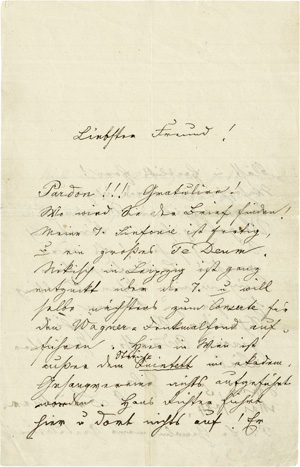 Liebster Freund!
Pardon!!! Gratulire!
Wo wird Sie der Brief finden!
Meine 7. Sinfonie ist fertig,
u ein großes Te Deum.
Nikisch in Leipzig ist ganz
entzückt über die 7. u will
selbe nächstens zum Concerte für
den Wagner-Denkmalfond auf-
führen. Hier in Wien ist
außer dem Streich Quintett im akadem.
Gesangverein nichts aufgeführt
worden. Hans Richter führt
hier u dort nichts auf! Er